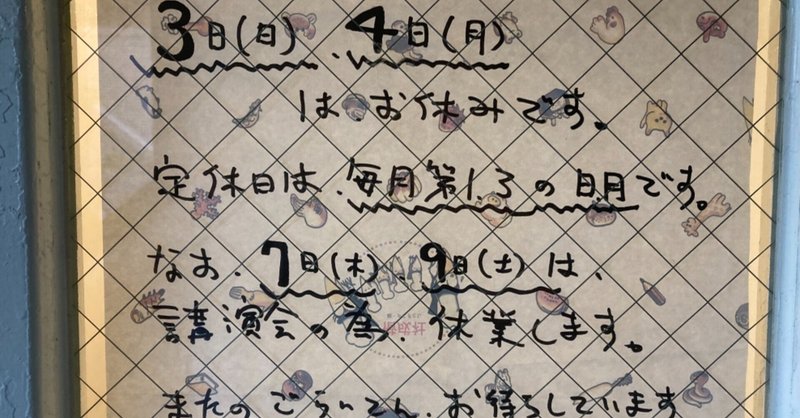 3日(日)、4日(月)
は、お休みです。
定休日は、毎月第1.3の日月です。
なお、7日(木)、9日(土)は、
講演会の為、休業します。
またのごらいてん、お待ちしています